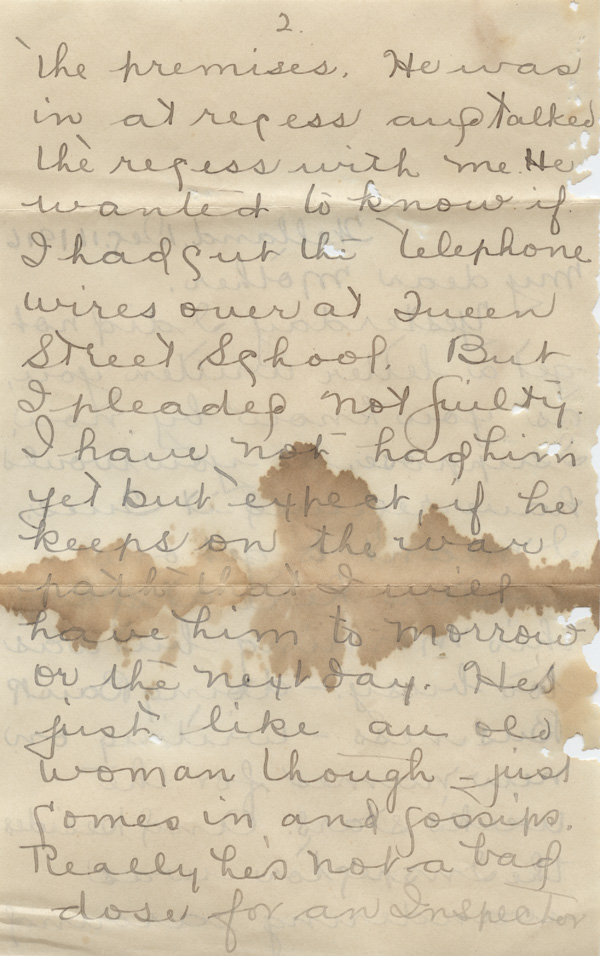 2.
the premises. He was
in at recess and talked
the recess with me. He
wanted to know if
I had cut the telephone
wires over at Queen
Street School. But
I pleaded not guilty.
I have not had him
yet but expect, if he
keeps on the war
path that I will
have him to morrow
or the next day. He's
just like an old
woman though - just
comes in and gossips.
Really he's not a bad
dose for an Inspector